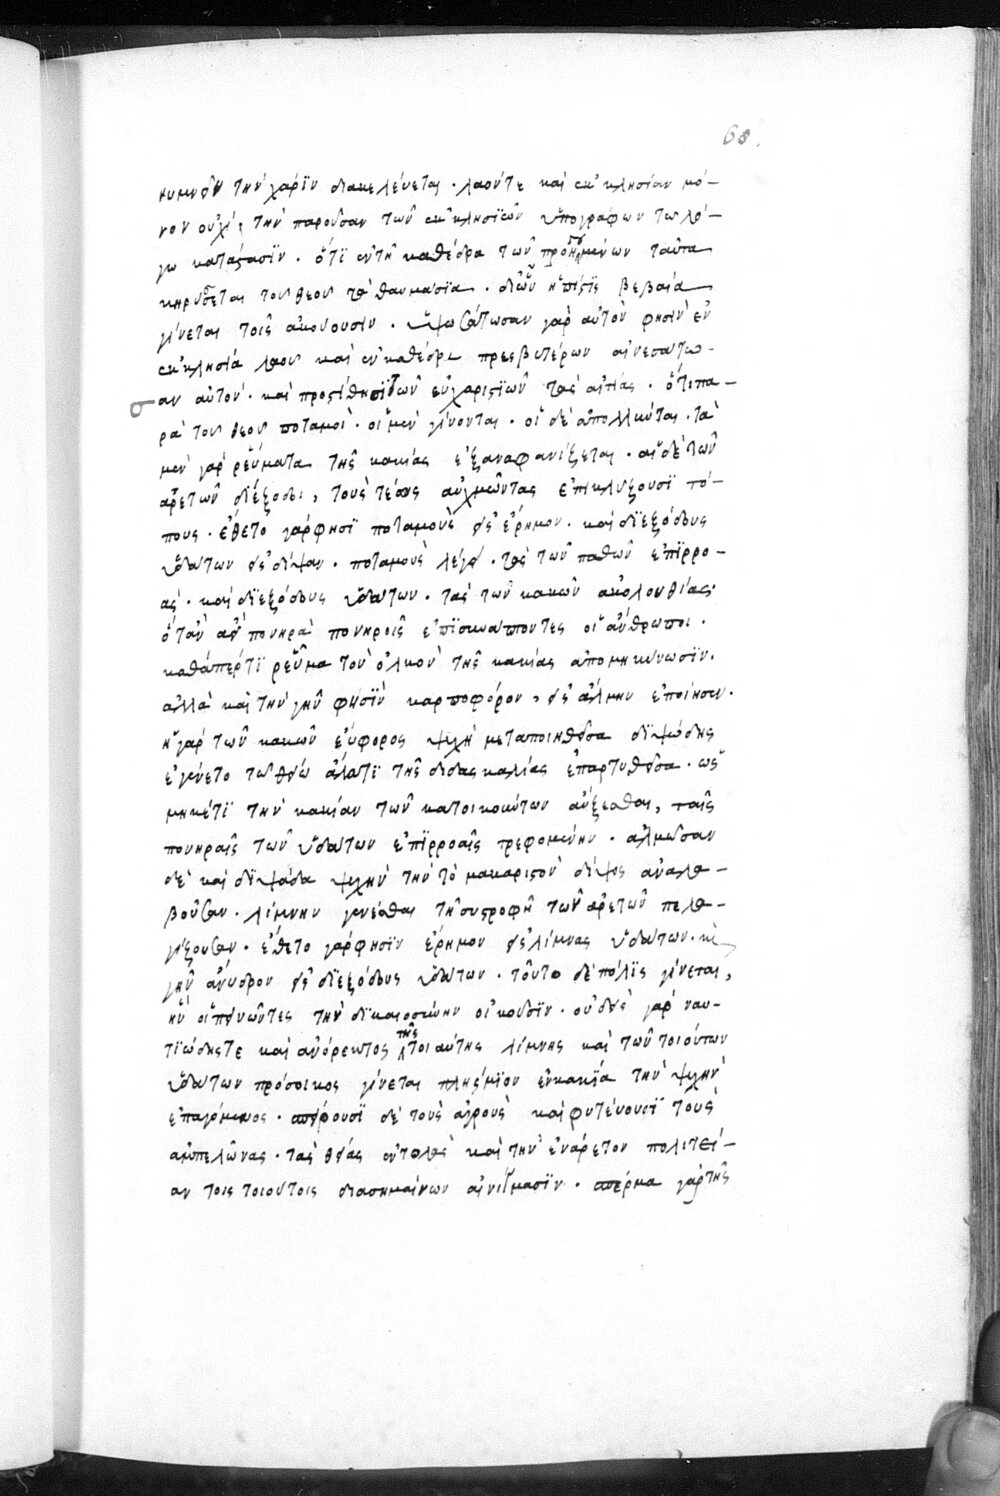 68.
κυμνὸν τὴν χάρϊν διακελέυεται. λαούτε καὶ ἐκκλησίαν μό-
νον ουχὶ, τὴν παροῦσαν τῶν ἐκκλησϊῶν ὑπογράφων τῶ λό-
γω κατάστασϊν. ὅτϊ ἐν τῆ καθέδρα τῶν προηγουμένων ταῦτα
κηρύσσεται τοῦ θεοῦ τὰ θαυμάσϊα. δι ὧν ἡ πίστϊς βεβαία
γίνεται τοῖς ἀκούουσιν. ὑψωσάτωσαν γὰρ αὐτὸν φησὶν ἐν
ἐκκλησία λαοῦ καὶ ἐν καθέδρα πρεσβυτέρων αἰνεσάτω-
σαν αὐτόν. καὶ προστίθησϊ τῶν εὐχαριστϊῶν τὰς αἰτίας. ὅτι πα-
ρὰ τοῦ θεοῦ ποταμοὶ. οἱ μὲν γίνονται. οἱ δὲ ἀπολλύνται. τὰ
μὲν γὰρ ῥεύματα τῆς κακίας ἐξαναφανίζεται. αἱ δὲ τῶν
ἀρετῶν διέξοδοι, τοὺς τέως αὐχμῶντας ἐπικλύζουσϊ τό-
πους. ἔθετο γάρ φησϊ ποταμοὺς εἰς ἔρημον. καὶ διεξόδους
ὑδάτων εἰς δίψαν. ποταμοὺς λέγει. τὰς τῶν παθῶν ἐπϊρρο-
άς. καὶ διεξόδους ὑδάτων. τὰς τῶν κακῶν ἀκολουθίας.
ὅταν ἀεὶ πονηρὰ πονηροῖς ἐπϊσυνάπτοντες οἱ ἄνθρωποι.
καθάπερ τϊ ῥεῦμα τὸν ὁλκὸν τῆς κακίας ἀπομηκύνωσϊν.
ἀλλὰ καὶ τὴν γῆν φησϊν καρποφόρον, εἰς ἅλμην ἐποίησεν.
ἡ γὰρ τῶν κακῶν εὔφορος ψυχὴ μεταποιηθεῖσα διψώδης
ἐγένετο τῶ θείω ἅλατϊ τῆς διδασκαλίας ἐπαρτυθεῖσα. ὡς
μηκέτϊ τὴν κακίαν τῶν κατοικούντων αὔξεσθαι, ταῖς
πονηραῖς τῶν ὑδάτων ἐπϊρροαῖς τρεφομένην. ἁλμῶσαν
δὲ καὶ διψάδα ψυχὴν τὴν τὸ μακαριστὸν δίψος ἀναλα-
βοῦσαν. λίμνην γενέσθαι τῆ συστροφῆ τῶν ἀρετῶν πελα-
γίζουσαν. ἔθετο γάρ φησϊν ἔρημον εἰς λίμνας ὑδάτων. καὶ
γῆν ἄνυδρον εἰς διεξόδους ὑδάτων. τοῦτο δὲ πόλϊς γίνεται,
ἣν οἱ πεινῶντες τὴν δικαιοσύνην οἰκοῦσϊν. οὐδεὶς γὰρ ναυ-
τϊώδης τε καὶ ἀνόρεκτος τῆς τοιαύτης λίμνης καὶ τῶν τοιούτων
ὑδάτων πρόσοικος γίνεται πλησμϊον ἐν κακία τὴν ψυχὴν
ἐπαγόμενος. σπείρουσϊ δὲ τοὺς ἀγροὺς καὶ φυτέυουσϊ τοὺς
ἀμπελῶνας. τὰς θείας ἐντολὰς καὶ τὴν ἐνάρετον πολιτεί-
αν τοῖς τοιούτοις διασημαίνων αἰνίγμασϊν. σπέρμα γὰρ τῆς